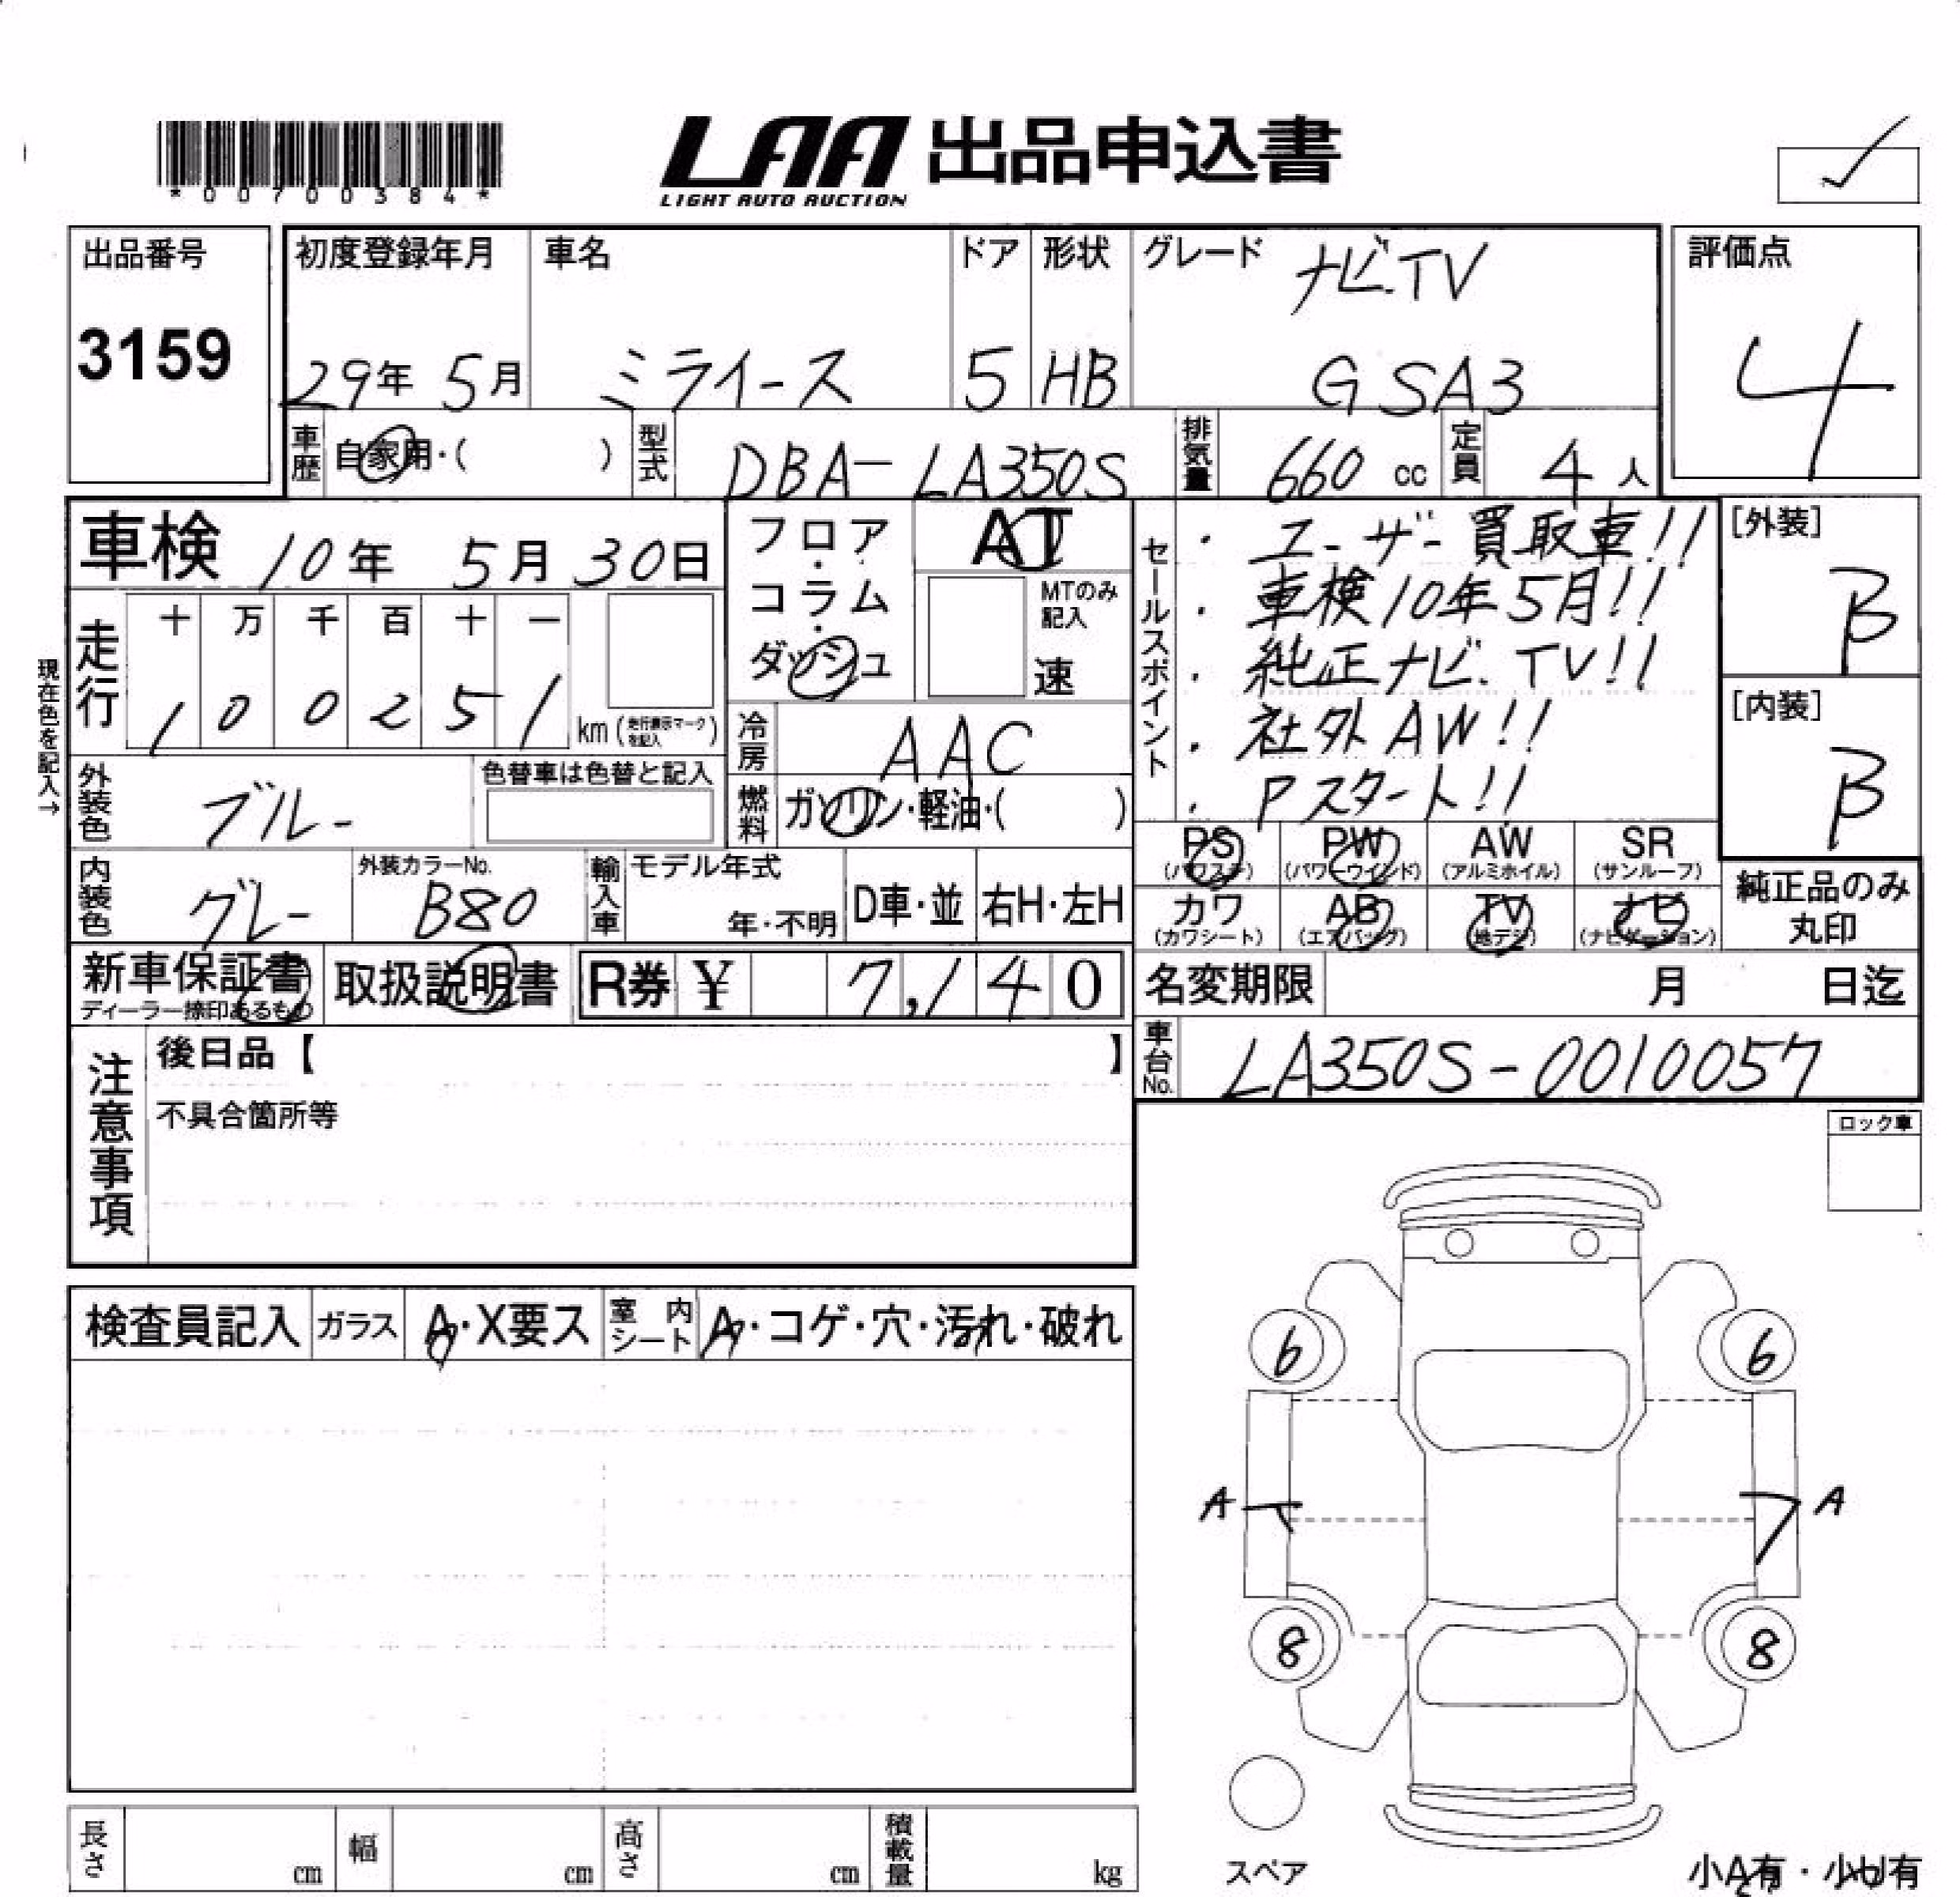 LAA 出品申込書
LIGHT AUTO AUCTION
*00700384*
出品番号
3159
初度登録年月
29年 5月
車名
ミライース
ドア
5
形状
HB
グレード ナビ.TV
G SA3
評価点
4
車歴 自家用・( )
型式 DBA-LA350S
排気量 660 cc
定員 4人
車検 10年 5月 30日
フロア・コラム・ダッシュ
AT
MTのみ記入
速
走行
十 万 千 百 十 一
1 0 0 2 5 1 km (走行表示マークを記入)
冷房 AAC
現在色を記入→
外装色 ブルー
色替車は色替と記入
燃料 ガソリン・軽油・( )
内装色 グレー
外装カラーNo.
B80
輸入車 モデル年式
年・不明
D車・並
右H・左H
セールスポイント
・ユーザー買取車!!
・車検10年5月!!
・純正ナビ.TV!!
・社外AW!!
・Pスタート!!
[外装]
B
[内装]
B
PS
(パワステ)
PW
(パワーウインド)
AW
(アルミホイル)
SR
(サンルーフ)
カワ
(カワシート)
AB
(エアバッグ)
TV
(地デジ)
ナビ
(ナビゲーション)
純正品のみ
丸印
新車保証書
ディーラー捺印あるもの
取扱説明書
R券 ¥ 7,140
名変期限 月 日迄
車台No. LA350S-0010057
注意事項
後日品【 】
不具合箇所等
ロック車
検査員記入
ガラス A・X要ス
室内シート A・コゲ・穴・汚れ・破れ
6 6
A A
8 8
スペア
小A有・小U有
長さ cm
幅 cm
高さ cm
積載量 kg